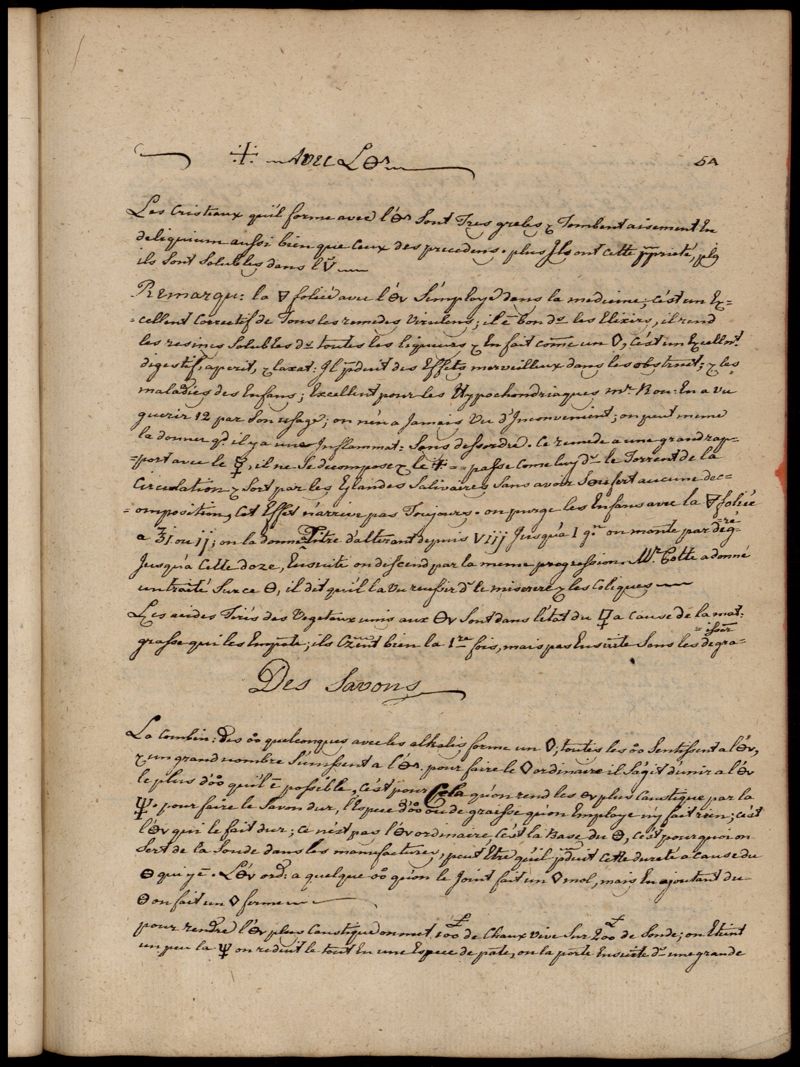 ⁜ Avec L'Θv 54
Les Cristeaux qu'il forme avec l'Θv Sont Tres greles & Tombent aisement En
deliquium aussi bien que Ceux des precedens. plus Ils ont cette pprieté, plq
ils Sont Solubles dans l'
Remarqu: la 🜃 foliée avec l'Θv S'employe dans la medecine; c'est un Ex=
=cellent Correctif de Tous les remedes Virulens; il ē bon ds les Elixirs, il rend
les resines Solubles ds toutes les liqueurs & En fait come un ◊, c'est un Excellnt
digestif, aperit, & laxat: Il pduit des Effets merveilleux dans les obstruct; & les
maladies des Enfans; Excellent pour les Hypochondriaques mr Rou: En a vu
guerir 12 par Son usage; on n'en a Jamais Vu d'Inconvenient; on peut meme
la donner qd il y a une Inflammat: Sans dessordre. Ce remede a une grand rap=
=port avec le ☿, il ne Se decompose & le passe Come luy ds le Torrent de la
Circulation & Sort par les Glandes Salivaires Sans avoir Soufert aucune dec=
=omposition, Cet Effet n'arrive pas Toujours. on purge les Enfans avec la 🜃 foliée
a ℥j ou ij; on la donne Titre d'alterant depuis Viij Jusqu'a I g. on monte par degré
Jusqu'a Cette doze, Ensuite on descend par la meme progression. Mr Cotte a donné
un traité Sur ce Θ, il dit qu'il l'a vu reussir ds le miserere & les Coliques
Les acides Tirés des Vegetaux unis aux Θv Sont dans l'etat du a cause de la mat.
grasse qui les Empate; ils bien la 1re fois, mais pas Ensuite Sans les degra=
=isser
Des Savons
La Combin: des quelconques avec les alkalis forme un ◊; toutes les S'entissent a l'Θv,
& un grand nombre S'unissent a l'Θv. pour faire le ◊ ordinaire il S'agit d'unir a l'Θv
le plus d' qu'il ē possible, c'est pour Cela qu'on rend les Θv plus Caustique par la
🜿. pour faire le Savon dur, l'Espece d' ou de graisse qu'on Employe n'y fait rien; c'est
l'Θv qui le fait dur; ce n'est pas l'Θv ordinaire c'est la Base du Θ, c'est pourquoi on
Sert de la Soude dans les manufactures, peut Etre qu'il pduit cette dureté a cause du
Θ qui y ē. L'Θv ord: a quelque qu'on le Joint fait un ◊ mol, mais En ajoutant du
Θ on fait un ◊ ferme
pour rendre l'Θv plus Caustique on met 100 ℔ de Chaux vive Sur 200 ℔ de Soude; on Eteint
un peu la on reduit le tout En une Espece de pate, on la porte Ensuite ds une grande